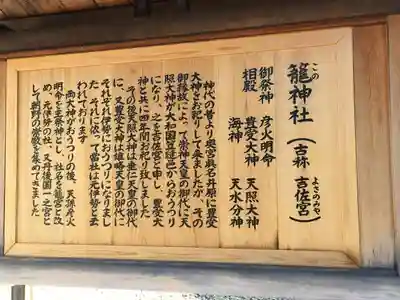 籠神社（古称 吉佐宮）
この
よさのみや
御祭神 彦火明命
相殿 豊受大神 天照大神
海神 天水分神
神代の昔より奥宮真名井原に豊受
大神をお祀りして来ましたが、その
御縁故によって崇神天皇の御代に天
照大神が大和国笠縫邑からおうつり
になり、之を吉佐宮と申し、豊受大
神と共に四年間お祀り致しました
その後天照大神は垂仁天皇の御代
に、又豊受大神は雄略天皇の御代に
それぞれ伊勢におうつりになりまし
た。それに依って当社は元伊勢と云
われております
両大神がおうつりの後、天孫彦火
明命を主祭神とし、社名を籠宮と改
め、元伊勢の社、又丹後国一之宮と
して朝野の崇敬を集めてきました